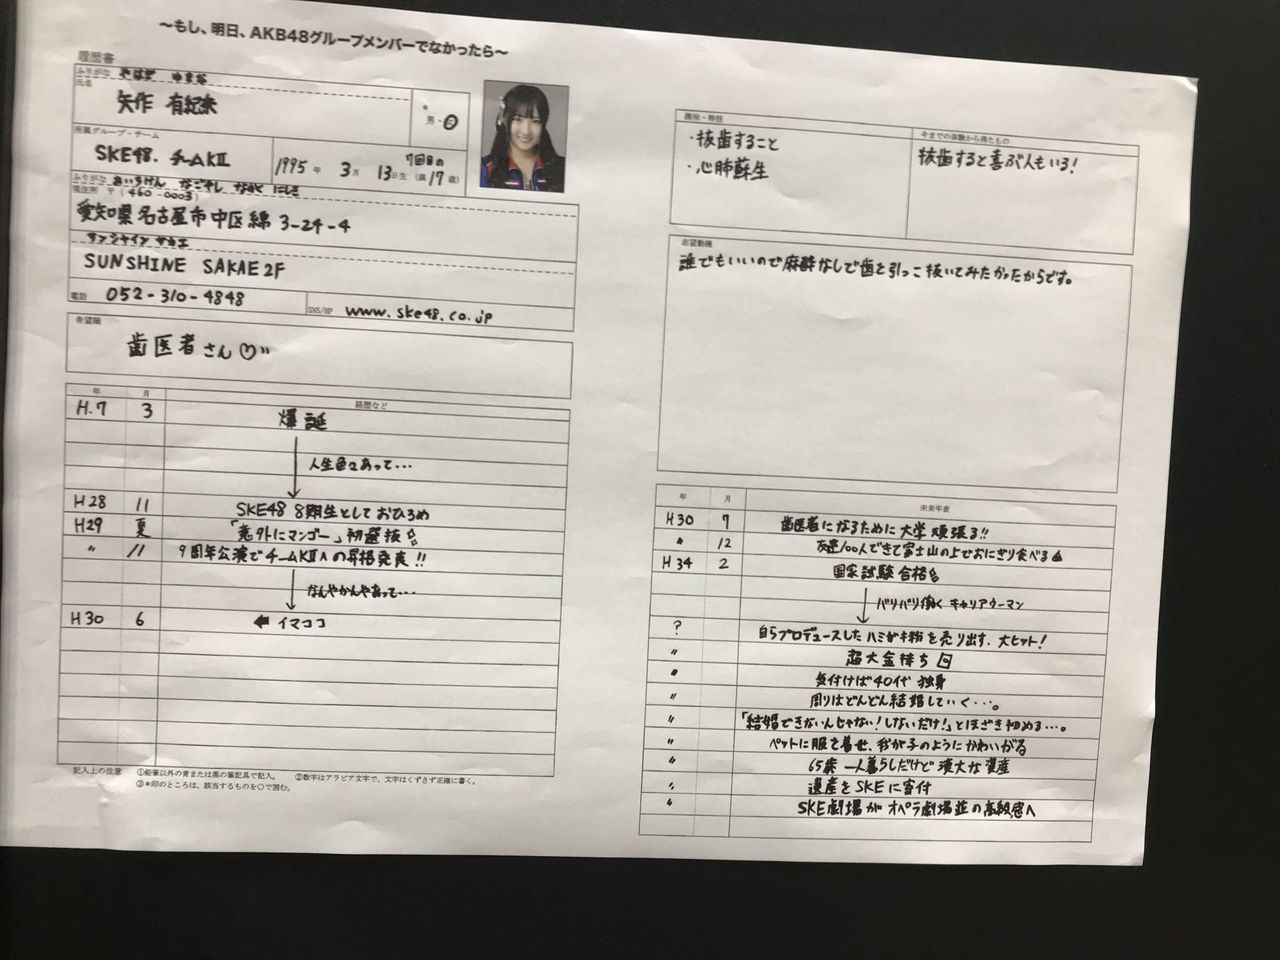 ～もし、明日、AKB48グループメンバーでなかったら～
履歴書
ふりがな やはぎ ゆきな
氏名 矢作 有紀奈
＊ 男・女
所属グループ・チーム
SKE48. チームKII
1995年 3月 13日生 (満 7回目の17歳)
ふりがな あいちけん なごやし なかく にしき
現住所 〒(460-0003)
愛知県名古屋市中区錦 3-24-4
サンシャイン サカエ
SUNSHINE SAKAE 2F
電話 052-310-4848
SNS/HP www.ske48.co.jp
希望職
歯医者さん♡”
年 月 経歴など
H.7 3 爆誕
人生色々あって…
H28 11 SKE48 8期生としておひろめ
H29 夏 「意外にマンゴー」初選抜
〃 11 9周年公演でチームKIIへの昇格発表!!
なんやかんやあって…
H30 6 ← イマココ
記入上の注意 ①鉛筆以外の青または黒の筆記具で記入。 ②数字はアラビア文字で、文字はくずさず正確に書く。
③＊印のところは、該当するものを○で囲む。
趣味・特技
・抜歯すること
・心肺蘇生
今までの体験から得たもの
抜歯すると喜ぶ人もいる!
志望動機
誰でもいいので麻酔なしで歯を引っこ抜いてみたかったからです。
年 月 未来年表
H30 7 歯医者になるために大学頑張る!!
〃 12 友達100人できて富士山の上でおにぎり食べる
H34 2 国家試験合格
バリバリ働くキャリアウーマン
? 自らプロデュースしたハミガキ粉を売り出す、大ヒット!
〃 超大金持ち
〃 気付けば40代 独身
〃 周りはどんどん結婚していく…。
〃 「結婚できないんじゃない!しないだけ!」とほざき初める…。
〃 ペットに服を着せ、我が子のようにかわいがる
〃 65歳 一人暮らしだけど莫大な資産
〃 遺産をSKEに寄付
〃 SKE劇場がオペラ劇場並の高級感へ